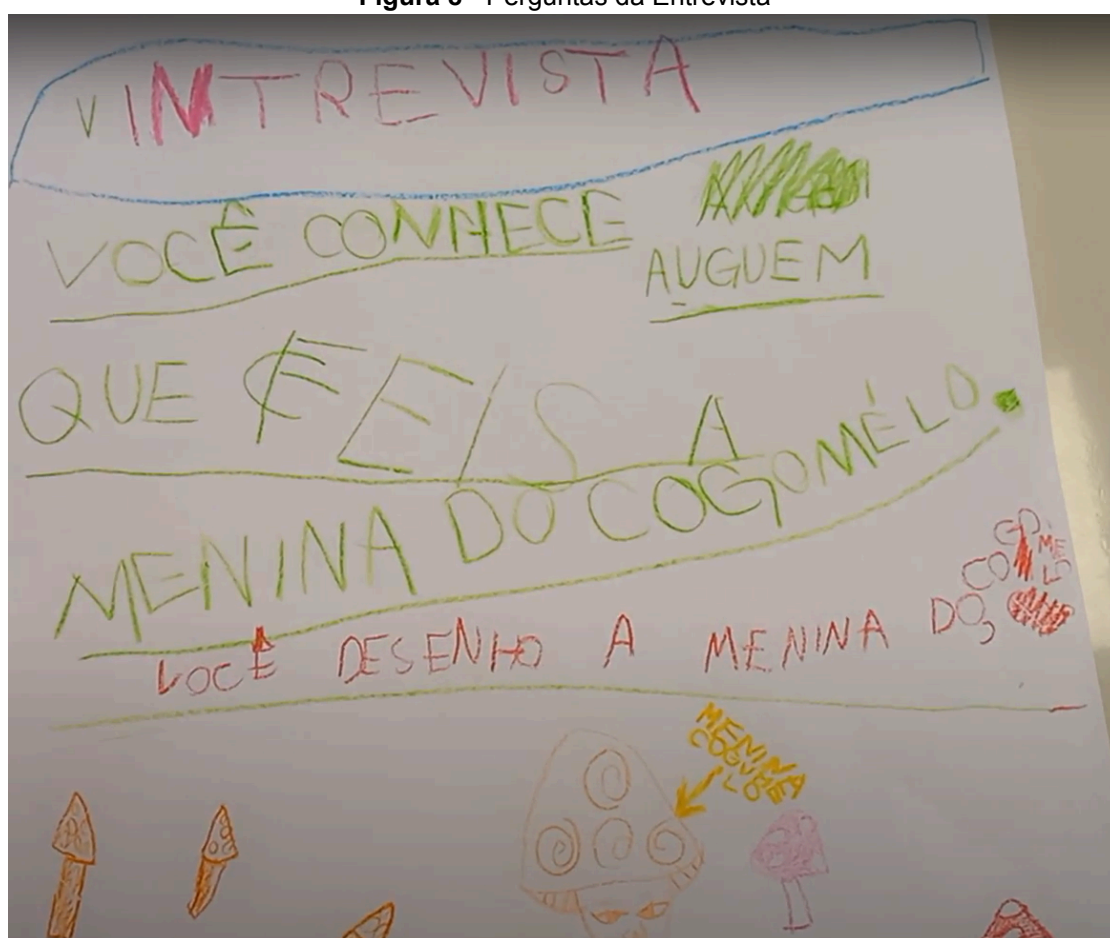 Figura 8 - Perguntas da Entrevista
V INTREVISTA
VOCÊ CONHECE
AUGUEM
QUE FEIS A
MENINA DO COGOMÉLO.
VOCÊ DESENHO A MENINA DO
MENINA
COGUME
LO